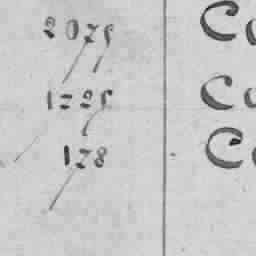 2075 Co
1725 Co
178 Co